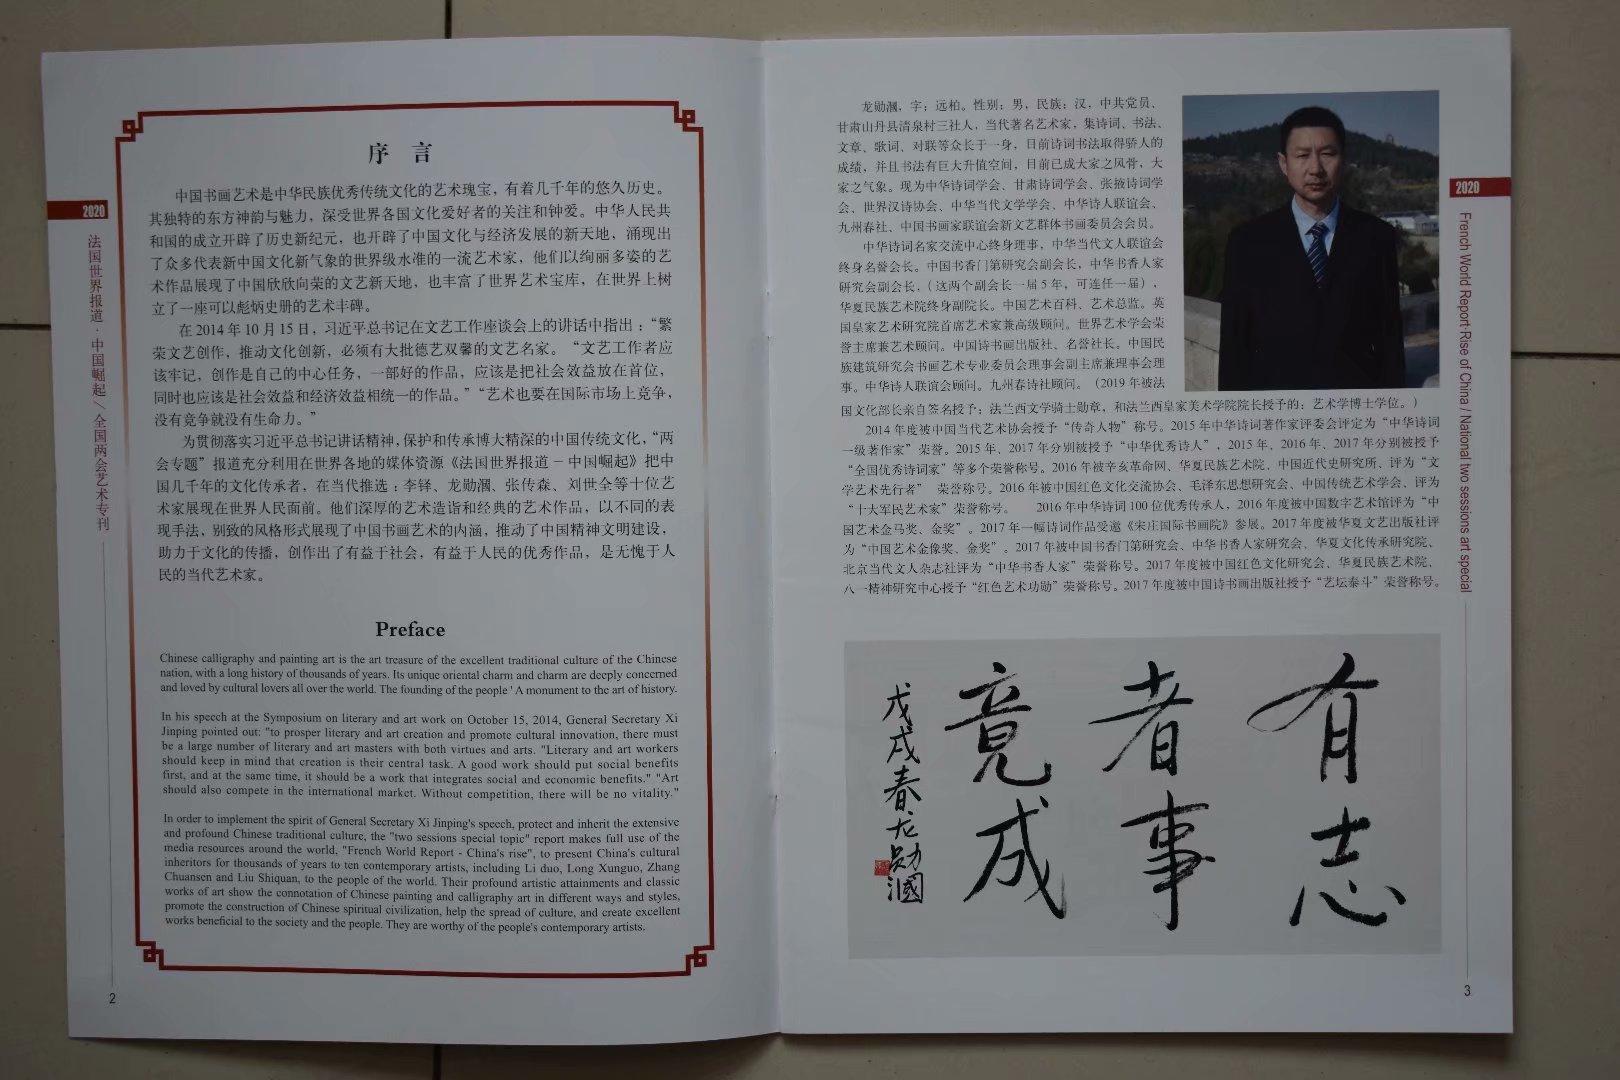 2020
法国世界报道·中国崛起／全国两会艺术专刊
序 言
中国书画艺术是中华民族优秀传统文化的艺术瑰宝，有着几千年的悠久历史。
其独特的东方神韵与魅力，深受世界各国文化爱好者的关注和钟爱。中华人民共
和国的成立开辟了历史新纪元，也开辟了中国文化与经济发展的新天地，涌现出
了众多代表新中国文化新气象的世界级水准的一流艺术家，他们以绚丽多姿的艺
术作品展现了中国欣欣向荣的文艺新天地，也丰富了世界艺术宝库，在世界上树
立了一座可以彪炳史册的艺术丰碑。
在2014年10月15日，习近平总书记在文艺工作座谈会上的讲话中指出：“繁
荣文艺创作，推动文化创新，必须有大批德艺双馨的文艺名家。“文艺工作者应
该牢记，创作是自己的中心任务，一部好的作品，应该是把社会效益放在首位，
同时也应该是社会效益和经济效益相统一的作品。”“艺术也要在国际市场上竞争，
没有竞争就没有生命力。”
为贯彻落实习近平总书记讲话精神，保护和传承博大精深的中国传统文化，“两
会专题”报道充分利用在世界各地的媒体资源《法国世界报道－中国崛起》把中
国几千年的文化传承者，在当代推选：李铎、龙勋漍、张传森、刘世全等十位艺
术家展现在世界人民面前。他们深厚的艺术造诣和经典的艺术作品，以不同的表
现手法，别致的风格形式展现了中国书画艺术的内涵，推动了中国精神文明建设，
助力于文化的传播，创作出了有益于社会，有益于人民的优秀作品，是无愧于人
民的当代艺术家。
Preface
Chinese calligraphy and painting art is the art treasure of the excellent traditional culture of the Chinese
nation, with a long history of thousands of years. Its unique oriental charm and charm are deeply concerned
and loved by cultural lovers all over the world. The founding of the people ' A monument to the art of history.
In his speech at the Symposium on literary and art work on October 15, 2014, General Secretary Xi
Jinping pointed out: "to prosper literary and art creation and promote cultural innovation, there must
be a large number of literary and art masters with both virtues and arts. "Literary and art workers
should keep in mind that creation is their central task. A good work should put social benefits
first, and at the same time, it should be a work that integrates social and economic benefits." "Art
should also compete in the international market. Without competition, there will be no vitality."
In order to implement the spirit of General Secretary Xi Jinping's speech, protect and inherit the extensive
and profound Chinese traditional culture, the "two sessions special topic" report makes full use of the
media resources around the world, "French World Report - China's rise", to present China's cultural
inheritors for thousands of years to ten contemporary artists, including Li duo, Long Xunguo, Zhang
Chuansen and Liu Shiquan, to the people of the world. Their profound artistic attainments and classic
works of art show the connotation of Chinese painting and calligraphy art in different ways and styles,
promote the construction of Chinese spiritual civilization, help the spread of culture, and create excellent
works beneficial to the society and the people. They are worthy of the people's contemporary artists.
2
龙勋漍，字；远柏。性别；男，民族；汉，中共党员、
甘肃山丹县清泉村三社人，当代著名艺术家，集诗词、书法、
文章、歌词、对联等众长于一身，目前诗词书法取得骄人的
成绩，并且书法有巨大升值空间，目前已成大家之风骨，大
家之气象。现为中华诗词学会、甘肃诗词学会、张掖诗词学
会、世界汉诗协会、中华当代文学学会、中华诗人联谊会、
九州春社、中国书画家联谊会新文艺群体书画委员会会员。
中华诗词名家交流中心终身理事，中华当代文人联谊会
终身名誉会长。中国书香门第研究会副会长，中华书香人家
研究会副会长，（这两个副会长一届5年，可连任一届），
华夏民族艺术院终身副院长。中国艺术百科、艺术总监。英
国皇家艺术研究院首席艺术家兼高级顾问。世界艺术学会荣
誉主席兼艺术顾问。中国诗书画出版社、名誉社长。中国民
族建筑研究会书画艺术专业委员会理事会副主席兼理事会理
事。中华诗人联谊会顾问。九州春诗社顾问。（2019年被法
国文化部长亲自签名授予；法兰西文学骑士勋章，和法兰西皇家美术学院院长授予的；艺术学博士学位。）
2014年度被中国当代艺术协会授予“传奇人物”称号。2015年中华诗词著作家评委会评定为“中华诗词
一级著作家”荣誉。2015年、2017年分别被授予“中华优秀诗人”，2015年、2016年、2017年分别被授予
“全国优秀诗词家”等多个荣誉称号。2016年被辛亥革命网、华夏民族艺术院、中国近代史研究所、评为“文
学艺术先行者” 荣誉称号。2016年被中国红色文化交流协会、毛泽东思想研究会、中国传统艺术学会、评为
“十大军民艺术家”荣誉称号。 2016年中华诗词100位优秀传承人，2016年度被中国数字艺术馆评为“中
国艺术金马奖、金奖”。2017年一幅诗词作品受邀《宋庄国际书画院》参展。2017年度被华夏文艺出版社评
为“中国艺术金像奖、金奖”。2017年被中国书香门第研究会、中华书香人家研究会、华夏文化传承研究院、
北京当代文人杂志社评为“中华书香人家”荣誉称号。2017年度被中国红色文化研究会、华夏民族艺术院、
八一精神研究中心授予“红色艺术功勋”荣誉称号。2017年度被中国诗书画出版社授予“艺坛泰斗”荣誉称号。
有志
者事
竟成
戊戌春龙勋漍
2020
French World Report·Rise of China / National two sessions art special
3